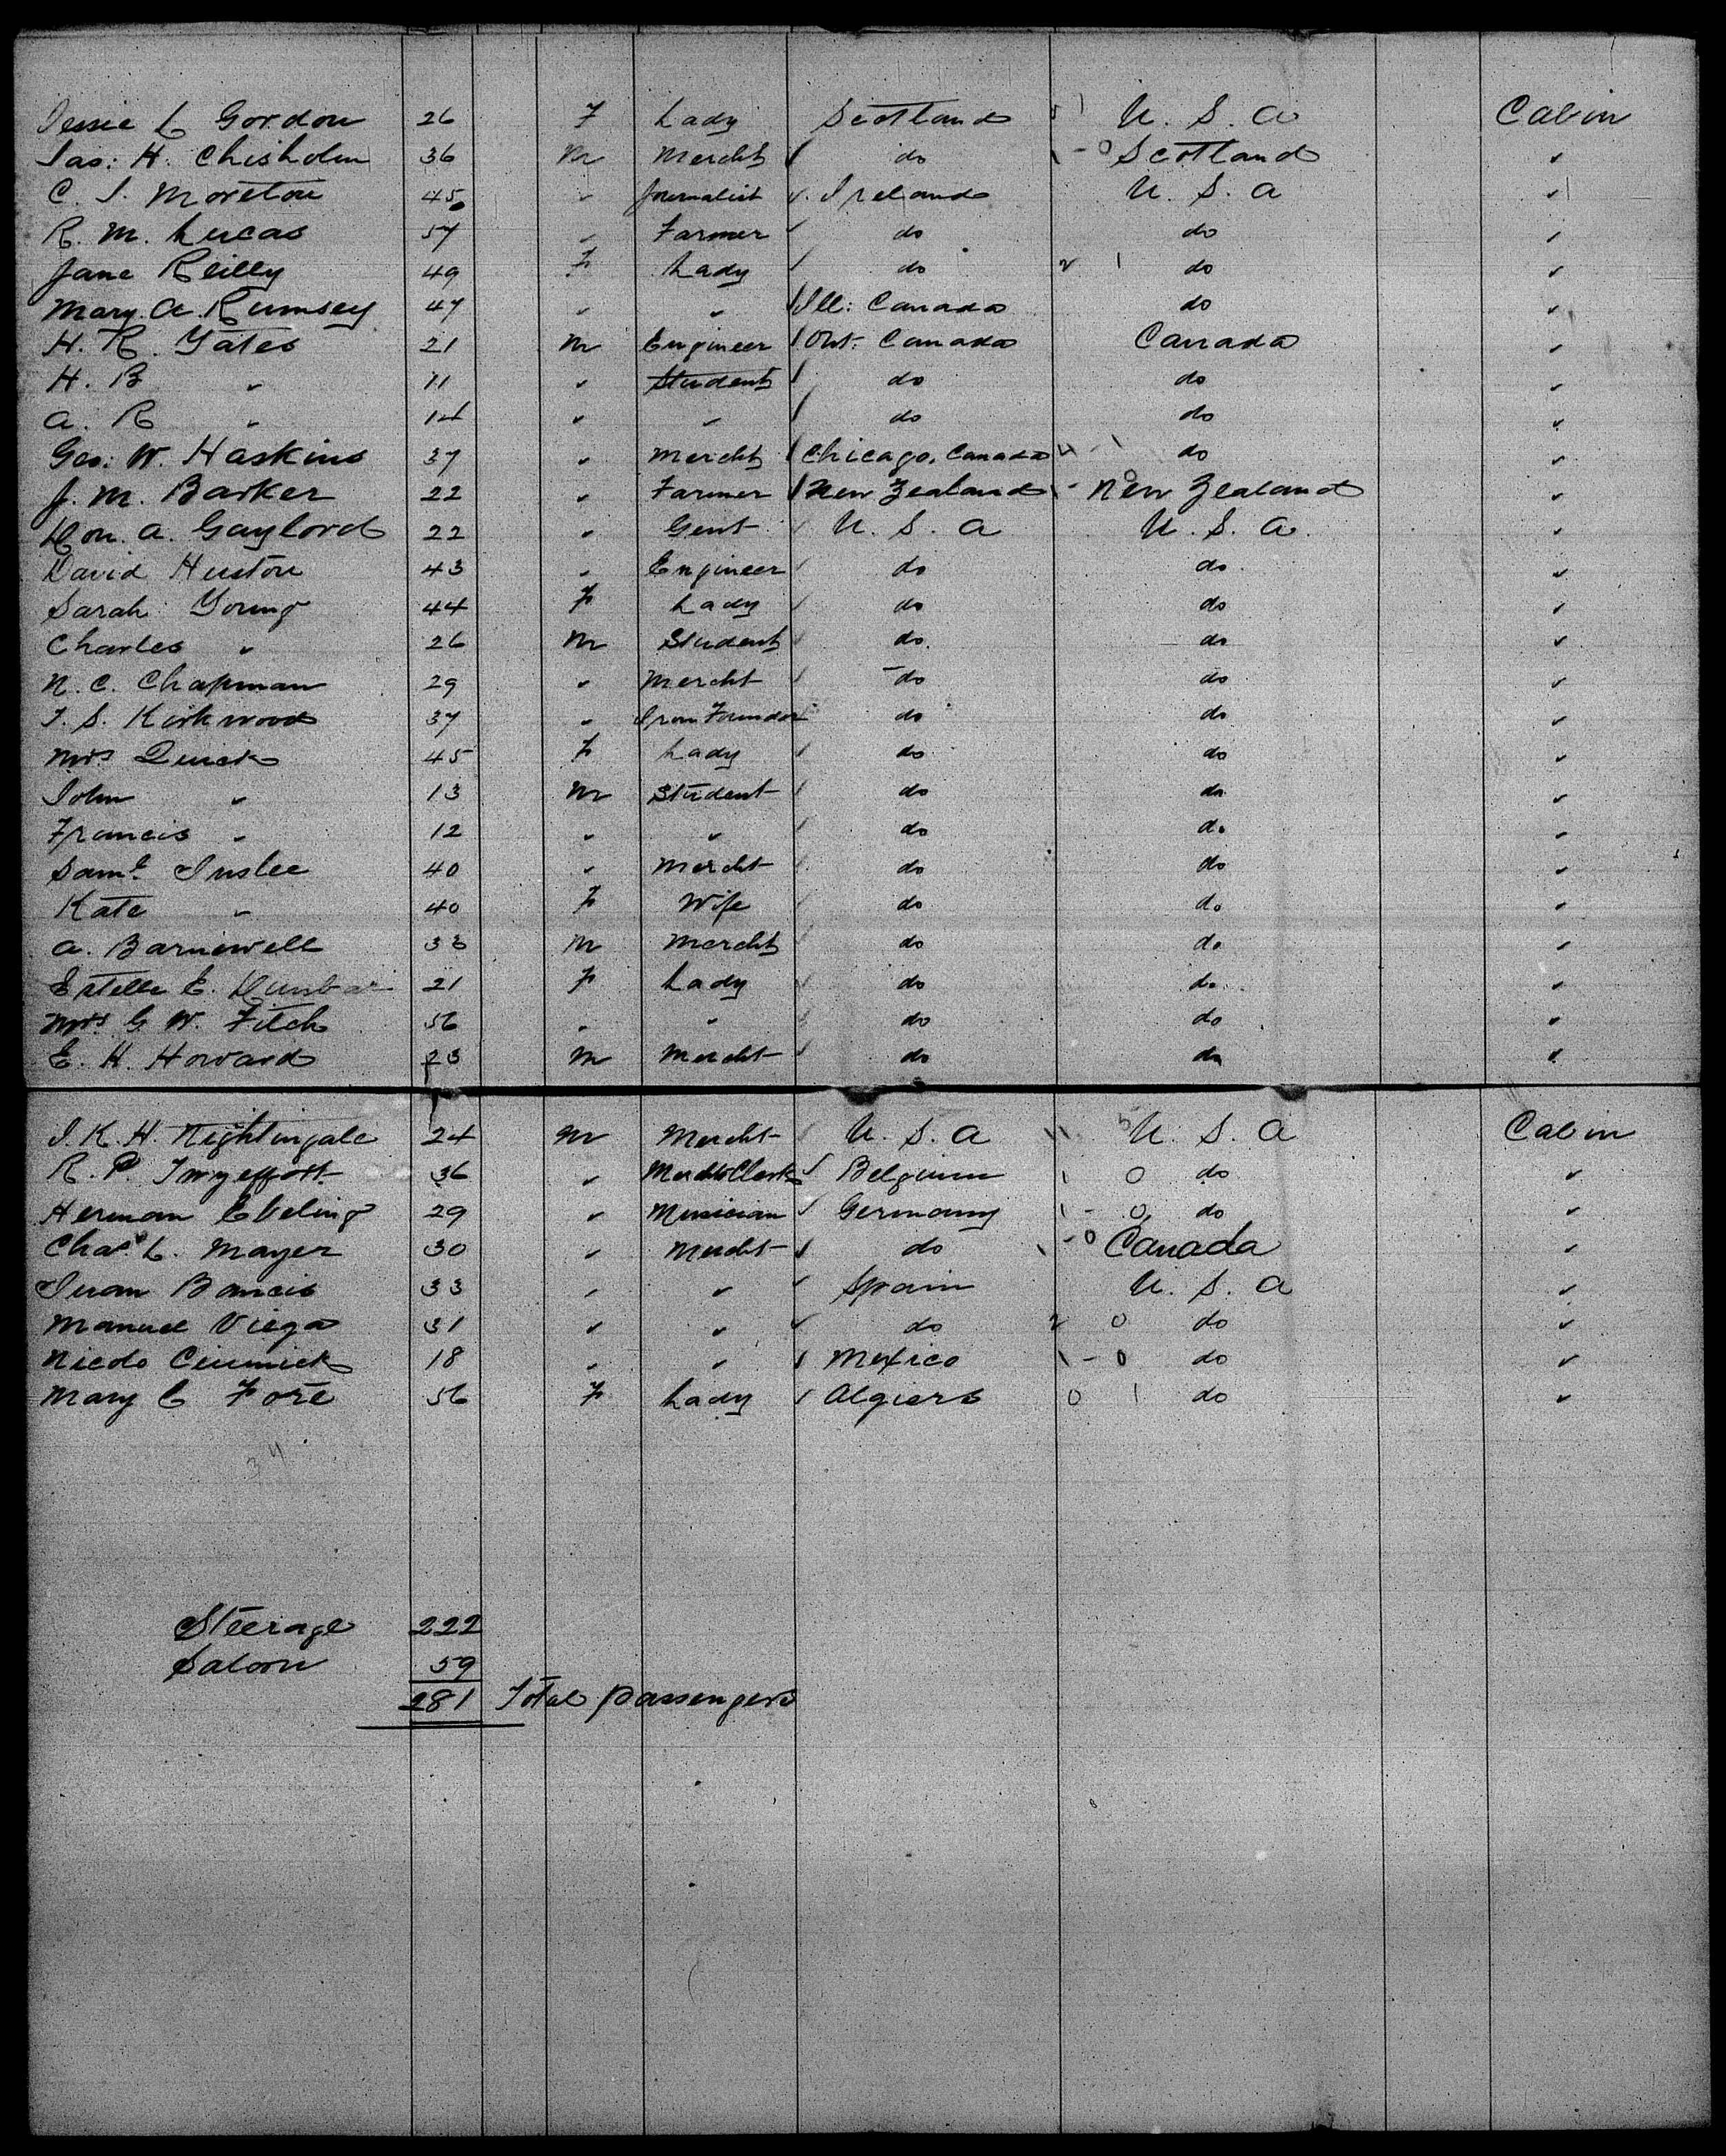 Jessie L Gordon 26 F Lady Scotland U. S. A Cabin
Jas: H. Chisholm 36 M Mercht do Scotland "
C. J. Moreton 45 " Journalist Ireland U. S. A "
R. M. Lucas 57 " Farmer do do "
Jane Reilly 49 F Lady do 2 1 do "
Mary. A. Rumsey 47 " " Ill: Canada do "
H. R. Yates 21 M Engineer Ont: Canada Canada "
H. B " 11 " Student do do "
A. R " 14 " " do do "
Geo: W. Haskins 37 " Mercht Chicago, Canada do "
J. M. Barker 22 " Farmer New Zealand New Zealand "
Hon. A. Gaylord 22 " Gent U. S. A U. S. A. "
David Huston 43 " Engineer do do "
Sarah Young 44 F Lady do do "
Charles " 26 M Student do do "
N. C. Chapman 29 " Mercht do do "
T. S. Kirkwood 37 " Iron Founder do do "
Mrs Quick 45 F Lady do do "
John " 13 M Student do do "
Francis " 12 " " do do "
Saml. Inslee 40 " Mercht do do "
Kate " 40 F Wife do do "
A. Barnewell 33 M Mercht do do "
Estelle E. Dunbar 21 F Lady do do "
Mrs G. W. Fitch 56 " " do do "
E. H. Howard 23 M Mercht do do "
J. K. H. Nightingale 24 M Mercht U. S. A U. S. A Cabin
R. P. 36 " Merchts Clerk Belgium 1 0 do "
Herman Ebeling 29 " Musician Germany 1 - 0 do "
Chas. L. Mayer 30 " Mercht do 1 - 0 Canada "
Juan 33 " " Spain U. S. A "
Manuel Viega 31 " " do 2 0 do "
18 " " Mexico 1 - 0 do "
Mary C Fore 56 F Lady Algiers 0 1 do "
34
Steerage 222
Saloon 59
281 Total passengers